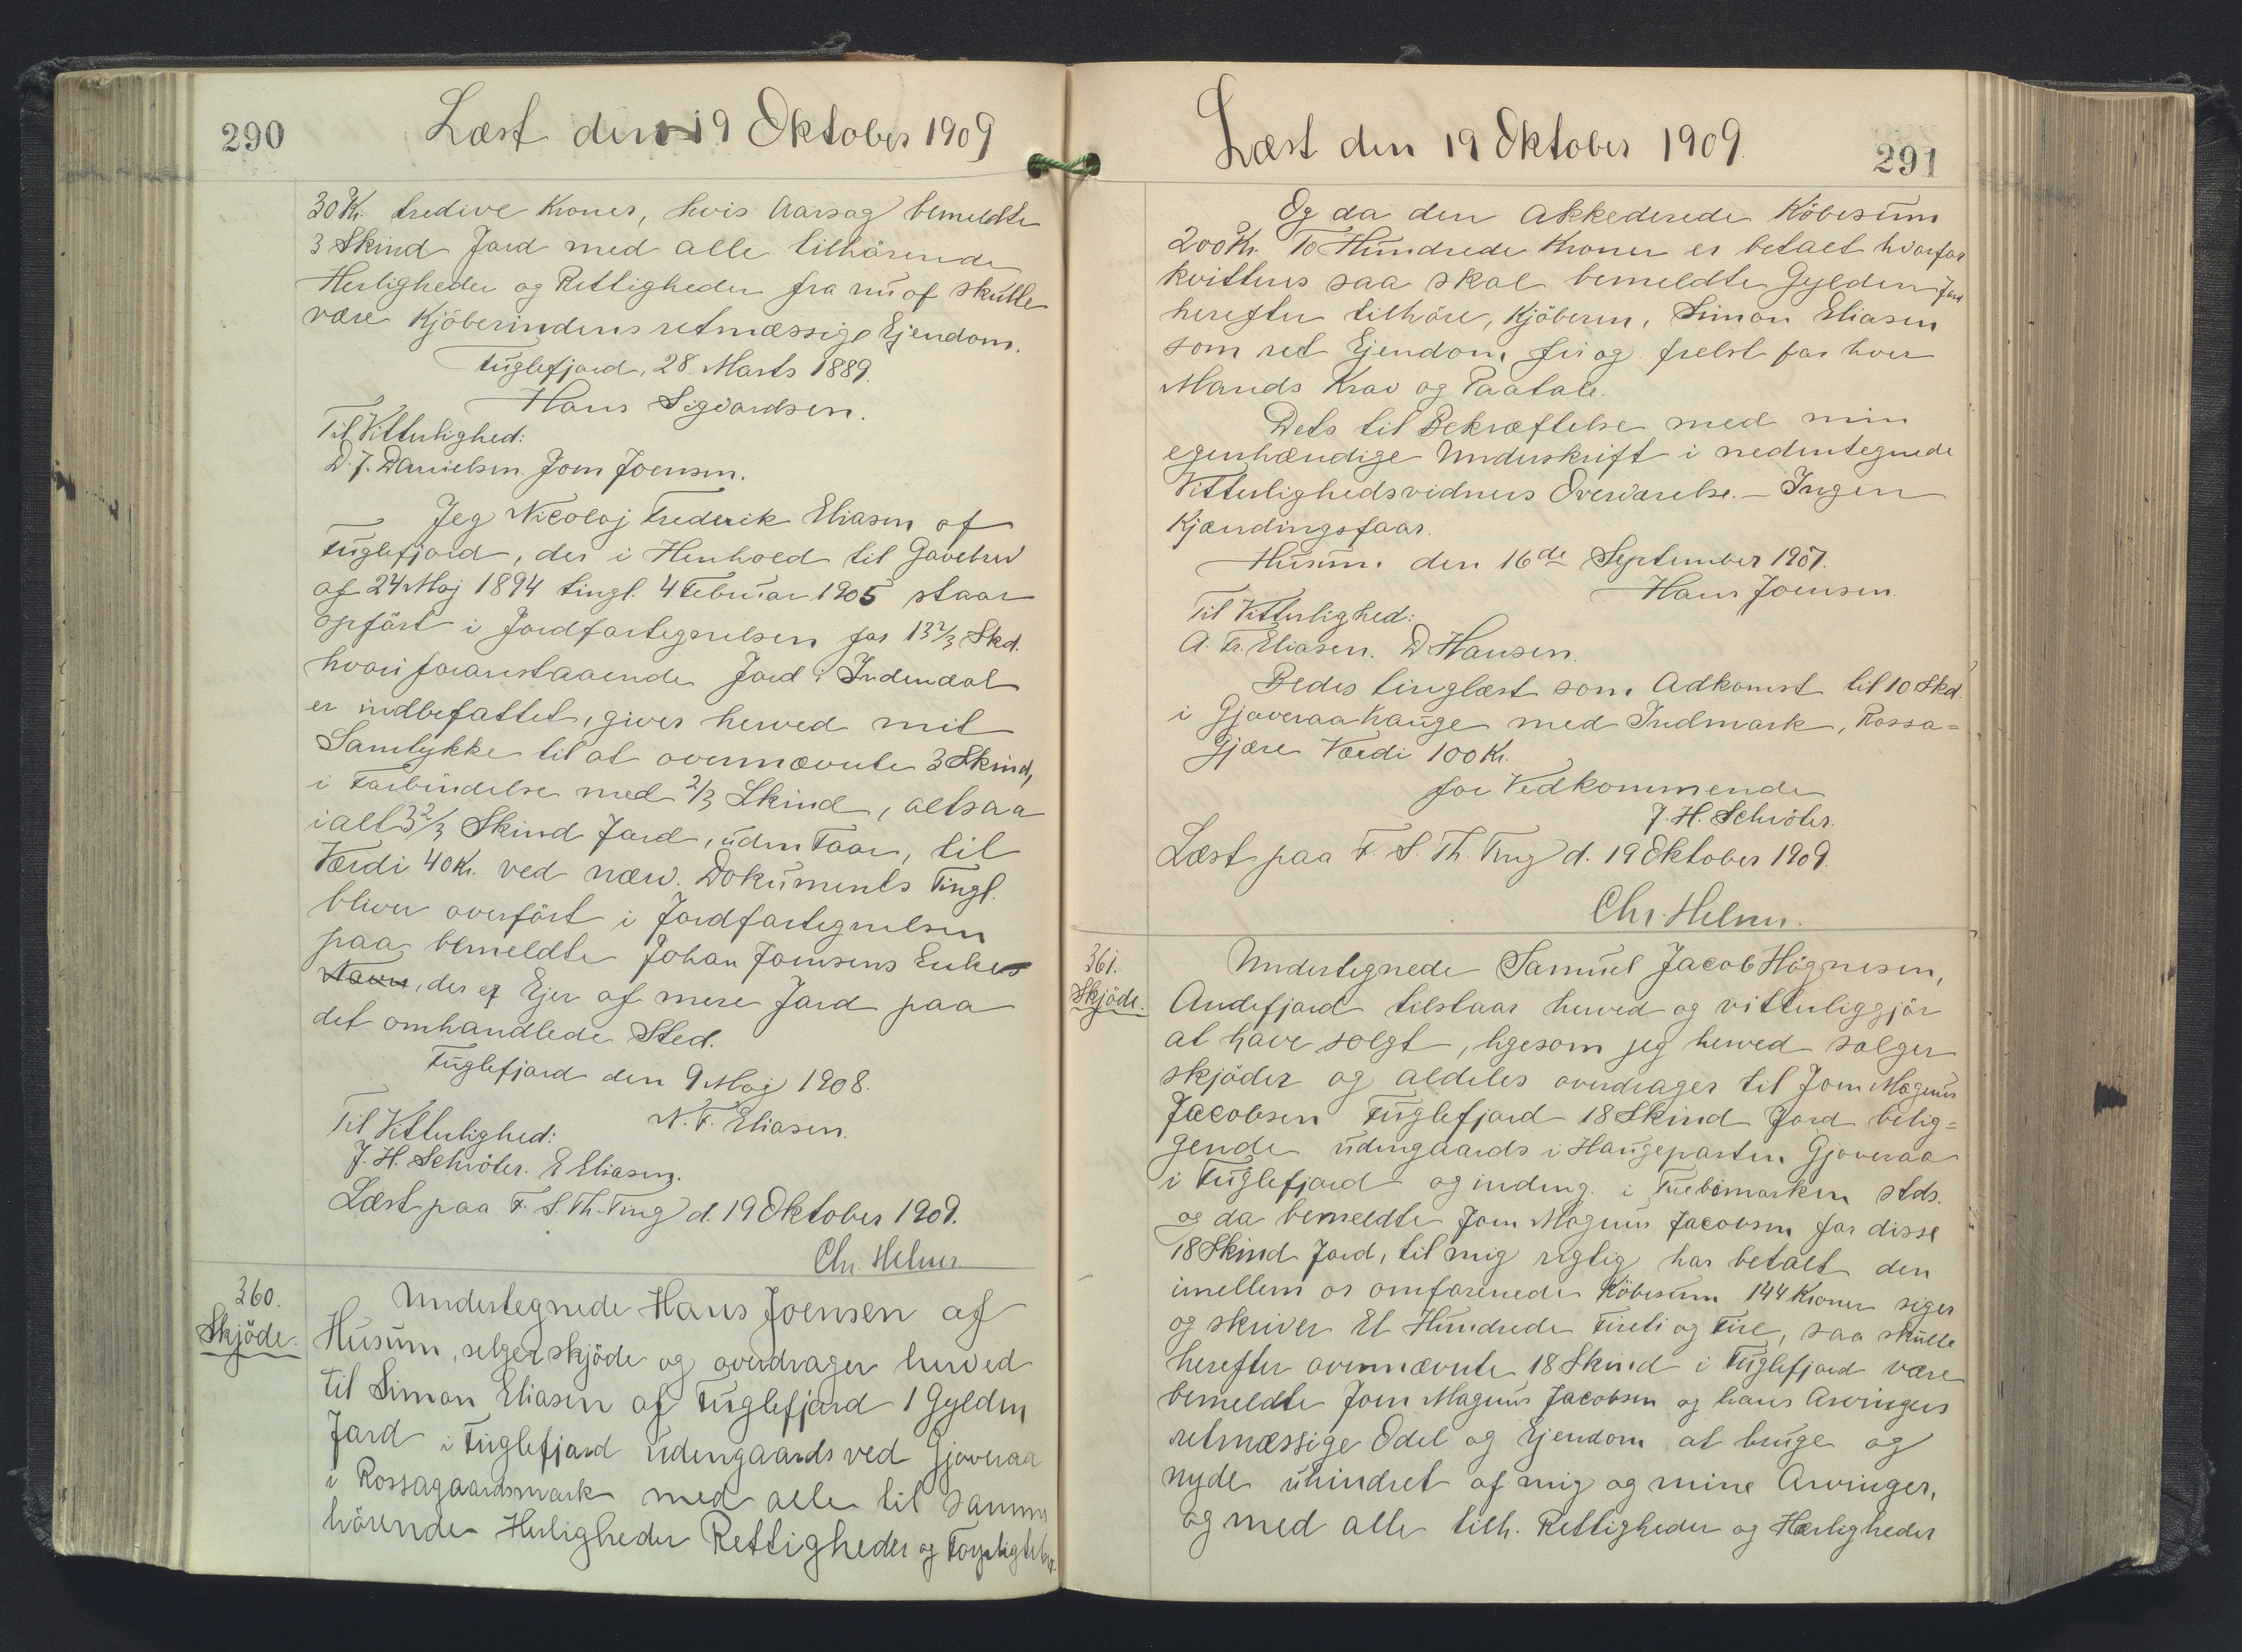 290
Læst den 19 Oktober 1909
30 Kr. tredive Kroner, hvis Aarsag bemeldte
3 Skind Jord med alle tilhörende
Herligheder og Rettigheder fra nu af skulle
være Kjöberindens retmæssige Ejendom.
Fuglefjord, 28. Marts 1889.
Hans Sigvardsen.
Til Vitterlighed:
D. J. Danielsen. Jom Joensen.
Jeg Nicolaj Frederik Eliasen af
Fuglefjord, der i Henhold til Gavebrev
af 24 Maj 1894 tingl. 4 Februar 1905 staar
opfört i Jordfortegnelsen for 13 2/3 Skd.
hvori foranstaaende Jord i Indendal
er indbefattet, giver herved mit
Samtykke til at ovennævnte 3 Skind,
i Forbindelse med 2/3 Skind, altsaa
ialt 3 2/3 Skind Jord, uden Faar, til
Værdi 40 Kr. ved næv. Dokuments Tingl.
bliver overfört i Jordfortegnelsen
paa bemeldte Johan Joensens Enkes
Navn, der ej Ejer af mere Jord paa
det omhandlede Sted.
Fuglefjord den 9 Maj 1908.
N. F. Eliasen.
Til Vitterlighed:
J. H. Schröter. E Eliasen.
Læst paa F. S. Th. Ting d. 19 Oktober 1909.
Chr. Helmer
360.
Skjöde.
Undertegnede Hans Joensen af
Husum, selger skjöde og overdrager herved
til Simon Eliasen af Fuglefjord 1 Gylden
Jord i Fuglefjord udengaards ved Gjoveraa
i Rossagaardsmark med alle til samme
hörende Herligheder Rettigheder og
Læst den 19 Oktober 1909.
291
Og da den Akkederede Köbesum
200 Kr. To Hundrede Kroner er betalt hvorfor
kvitteres saa skal bemeldte Gylden Jord
herefter tilhöre, Kjöberen, Simon Eliasen
som ret Ejendom fri og frelst for hver
Mands Krav og Paatale.
Dets til Bekræftelse med min
egenhændige Underskrift i nedentegnede
Vitterlighedsvidners Overværelse. – Ingen
Kjændingsfaar.
Husum den 16de September 1907.
Hans Joensen
Til Vitterlighed:
A. Fr. Eliasen. D Hansen.
Bedes tinglæst som Adkomst til 10 Skd.
i Gjoveraa Hauge med Indmark, Rossa=
Gjære Værdi 100 Kr.
for Vedkommende
J. H. Schröter.
Læst paa F. S. Th. Ting d. 19 Oktober 1909.
Chr. Helmer.
361.
Skjöde.
Undertegnede Samuel Jacob Högnesen,
Andefjord tilstaar herved og vitterliggjör
at have solgt, ligesom jeg herved sælger
skjöder og aldeles overdrager til Jom Magnus
Jacobsen Fuglefjord 18 Skind Jord belig=
gende udengaards i Haugeparten Gjoveraa
i Fuglefjord og indeng. i Trebimarken stds.
og da bemeldte Jom Magnus Jacobsen for disse
18 Skind Jord, til mig rigtig har betalt den
imellem os omforenede Köbesum 144 Kroner siger
og skriver Et Hundrede Fireti og Fire, saa skulle
herefter ovennævnte 18 Skind i Fuglefjord være
bemeldte Jom Magnus Jacobsen og hans Arvingers
retmæssige Odel og Ejendom at bruge og
nyde uhindret af mig og mine Arvinger,
og med alle tilh. Rettigheder og Hærligheder